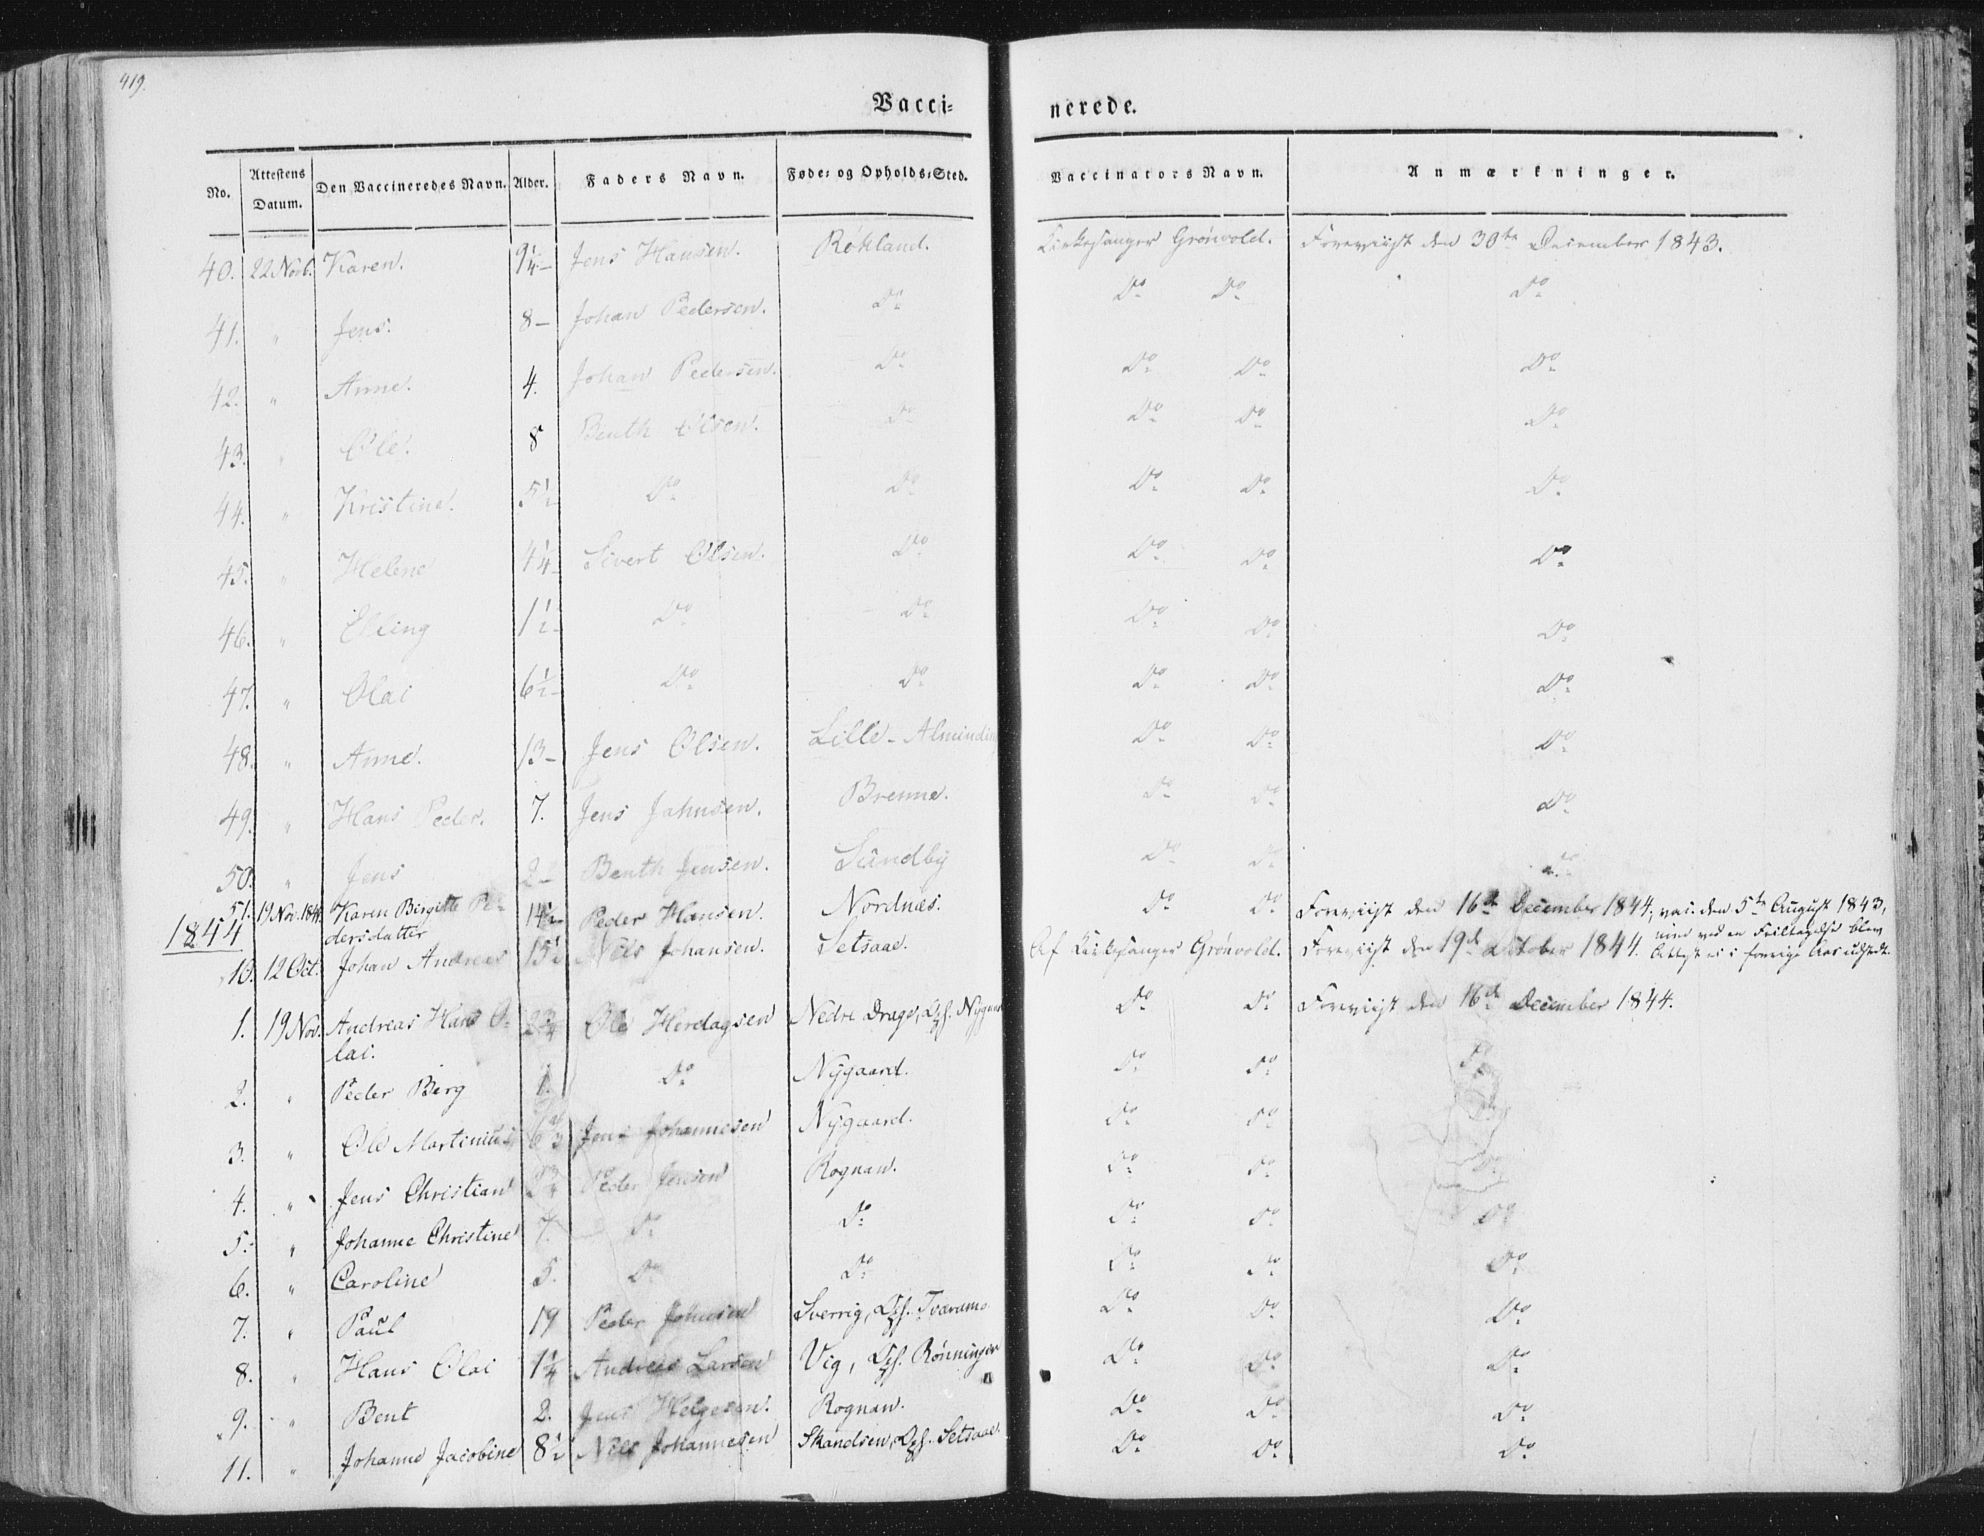 419.
Vacci= nerede.
No. Attestens Datum. Den Vaccineredes Navn. Alder. Faders Navn. Føde= og Opholds=Sted. Vaccinators Navn. Anmærkninger.
40. 22 Novb. Karen. 9 1/4 – Jens Hansen. Røkland. Kirkesanger Grönvold. Foreviist den 30te December 1843.
41. " Jens. 8 – Johan Pedersen. Do Do Do Do
42. " Anne. 4. Johan Pedersen. Do Do Do Do
43. " Ole. 8 Benth Olsen. Do Do Do Do
44. " Kristine. 5 1/2 Do Do Do Do Do
45. " Helene 4 1/4 – Sivert Olsen. Do Do Do Do
46. " Elling 1 1/2 – Do Do Do Do Do
47. " Olai 6 1/2 – Do Do Do Do Do
48. " Anne. 13 – Jens Olsen. Lille-Alminding Do Do Do
49. " Hans Peder. 7. Jens Jahnsen. Brenne. Do Do Do
50. " Jens 2 – Benth Jensen. Sundby Do Do Do
51. 19 Nov. 1844 Karen Birgitte Pe- 14 1/2 Peder Hansen. Nordnæs. Do Do Foreviist den 16de December 1844, vac. den 5te August 1843,
dersdatter
men ved en Feiltagelse blev
1844
10. 12 Oct. Johan Andreas 15 1/2 Niels Johansen. Setsaae. Af Kirkesanger Grönvold. Foreviist den 19de October 1844. Attest ei i forrige Aar udstedt.
1. 19 Nov. Andreas Hans O- 2 3/4 Ole Herdagsen Nedre Drage, Oph. Nygaard Do Do Foreviist den 16de December 1844.
lai.
2. " Peder Berg 1. Do Nÿgaard. Do Do Do
3. " Ole Martinius 6 2/3 Jens Johannesen Nÿgaard. Do Do
4. " Jens Christian 2 3/4 Peder Jensen Rognan. Do Do
5. " Johanne Christine 7. Do Do Do Do Do
6. " Caroline 5. Do Do Do Do Do
7. " Paul 19 Peder Johnsen Sverrig, Oph. Do Do Do
8. " Hans Olai 1 1/4 Andreas Larsen Vig, Oph. Rönningen Do Do Do
9. " Bent 2. Jens Helgesen. Rognan. Do Do Do
11. " Johanne Jacobine 8 1/2 Niels Johannesen Skandsen, Oph. Setsaae. Do Do Do